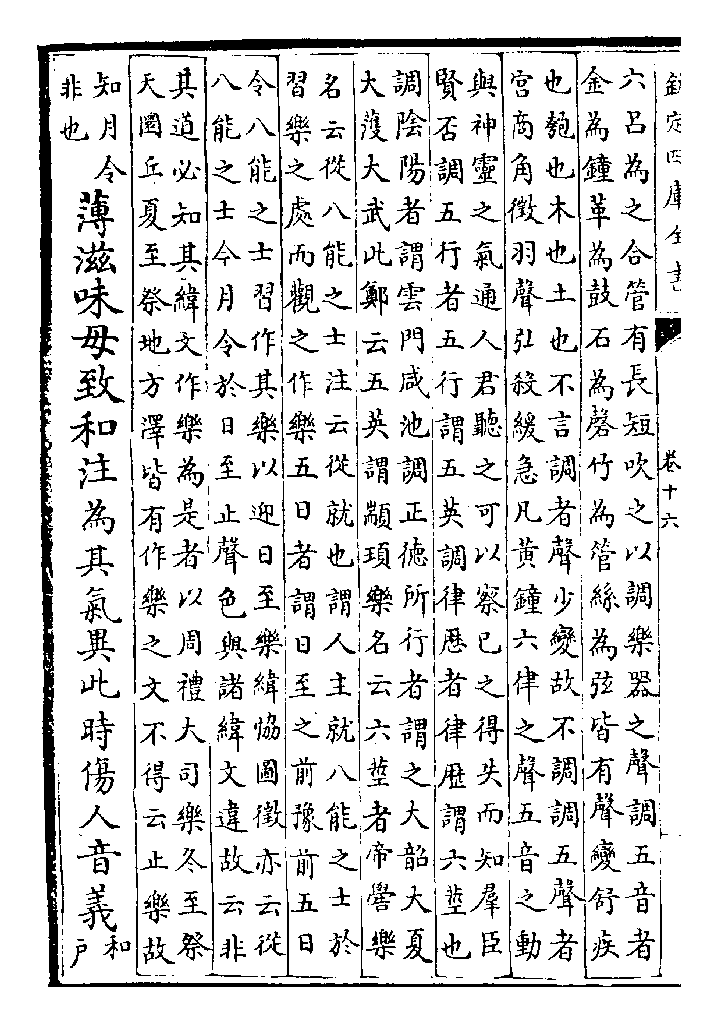 欽定四庫全書
卷十六
六呂為之合管有長短吹之以調樂器之聲調五音者
金為鐘革為鼓石為磬竹為管絲為弦皆有聲變舒疾
也匏也木也土也不言調者聲少變故不調調五聲者
宮商角徵羽聲弘殺緩急凡黄鐘六律之聲五音之動
與神靈之氣通人君聽之可以察已之得失而知羣臣
賢否調五行者五行謂五英調律厯者律歴謂六莖也
調陰陽者謂雲門咸池調正徳所行者謂之大韶大夏
大䕶大武此鄭云五英謂顓頊樂名云六莖者帝嚳樂
名云從八能之士注云從就也謂人主就八能之士於
習樂之處而觀之作樂五日者謂日至之前豫前五日
令八能之士習作其樂以迎日至樂緯恊圖徵亦云從
八能之士今月令於日至止聲色與諸緯文違故云非
其道必知其緯文作樂為是者以周禮大司樂冬至祭
天圜丘夏至祭地方澤皆有作樂之文不得云止樂故
知月令
非也
薄滋味毋致和注為其氣異此時傷人音義
和
戶